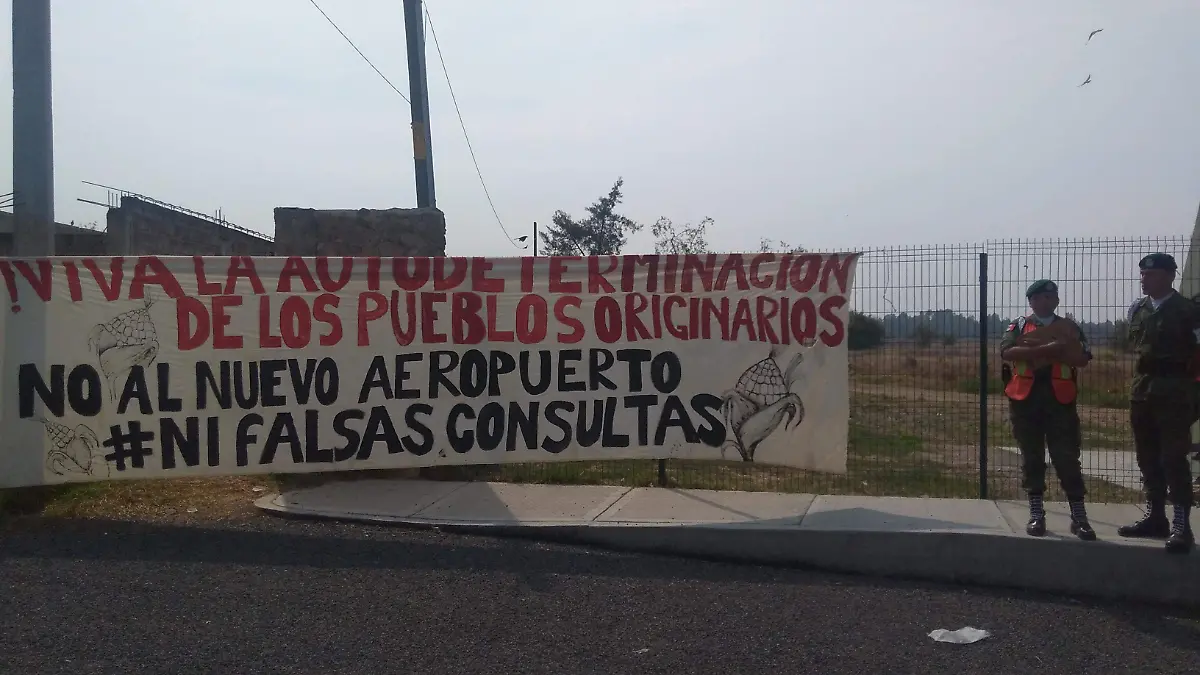 ¡VIVA LA AUTODETERMINACION
DE LOS PUEBLOS ORIGINARIOS
NO AL NUEVO AEROPUERTO
#NI FALSAS CONSULTAS